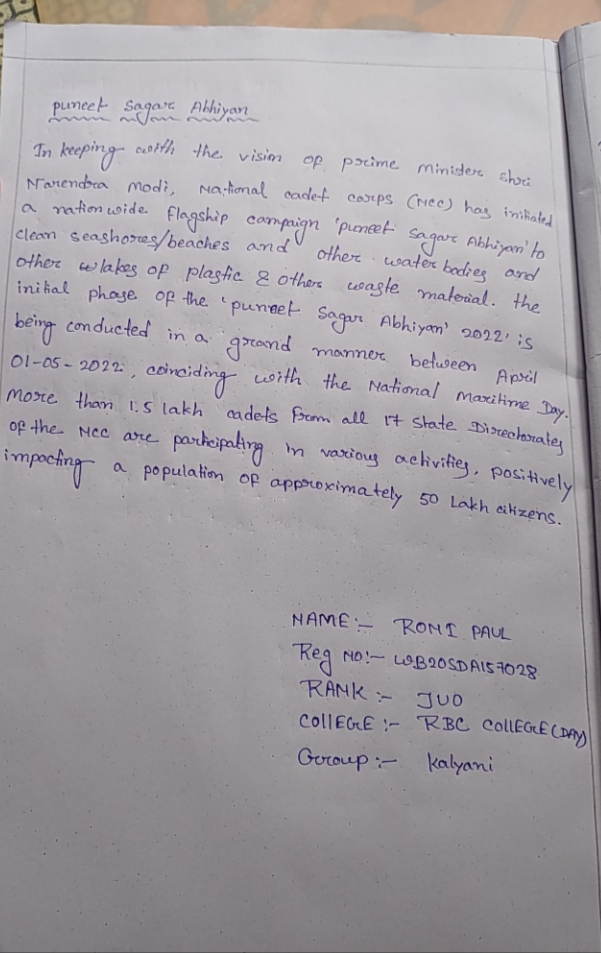 puneet Sagar Abhiyan
In keeping with the vision of prime minister shri
Narendra Modi, National cadet corps (NCC) has initiated
a nation wide flagship campaign 'puneet Sagar Abhiyan' to
clean seashores/beaches and other water bodies and
other lakes of plastic & others waste material. the
initial phase of the 'puneet Sagar Abhiyan' 2022' is
being conducted in a grand manner between April
01-05-2022, coinciding with the National Maritime Day.
More than 1.5 lakh cadets from all 17 State Directorates
of the NCC are participating in various activities, positively
impacting a population of approximately 50 Lakh citizens.
NAME:- RONI PAUL
Reg NO:- WB20SDA157028
RANK:- JUO
COllEGE:- RBC COllEGE(DAY)
Group:- Kalyani